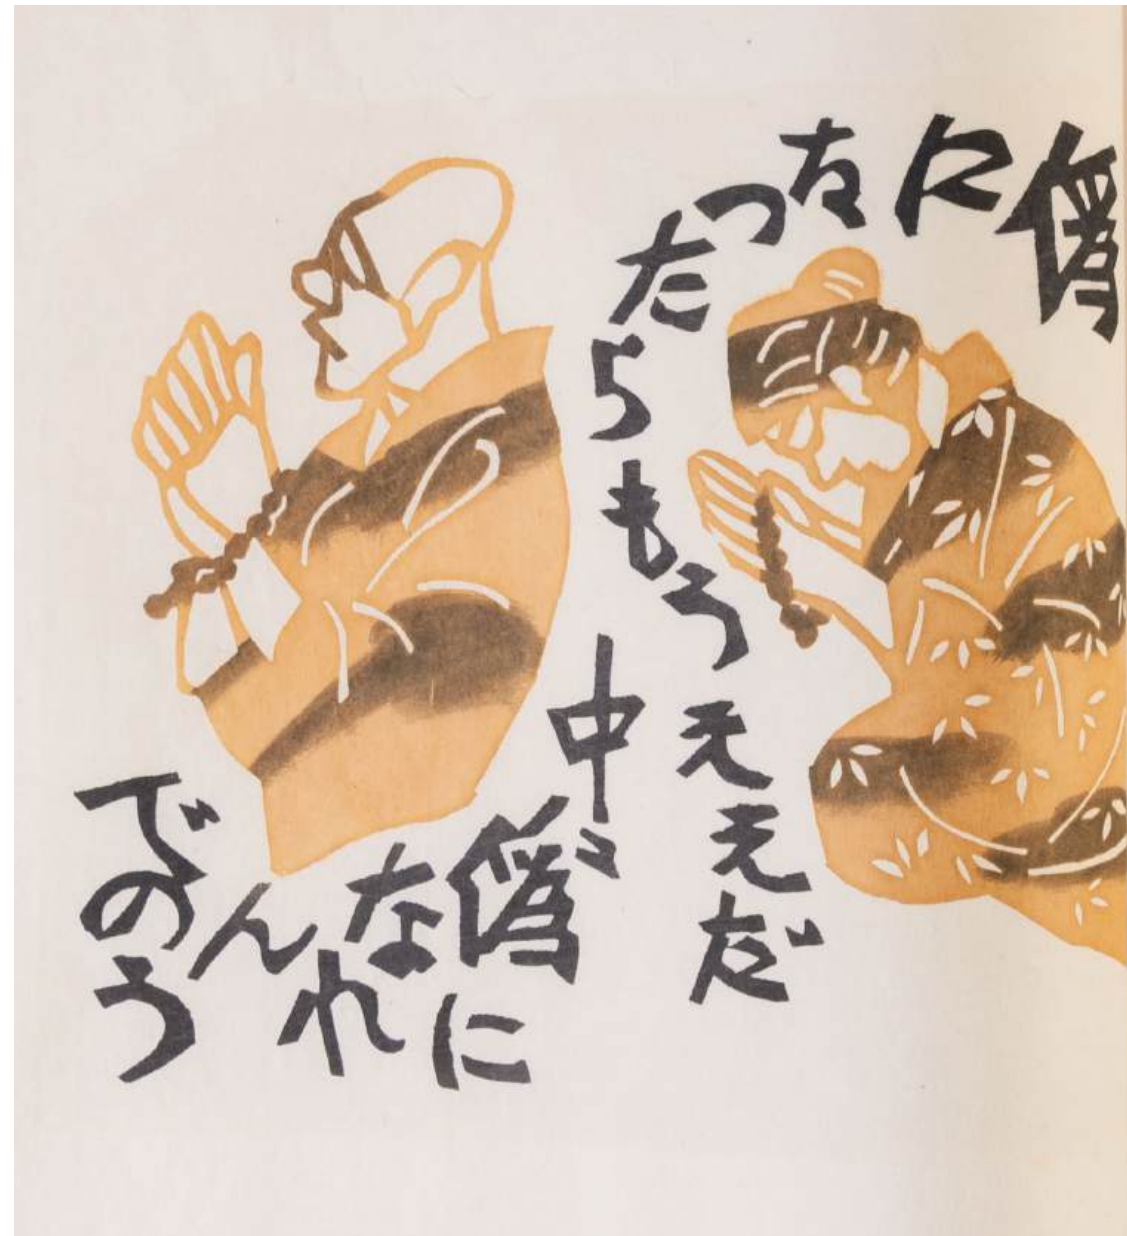 僞になつたらもうええだ
中〻僞になれんでのう